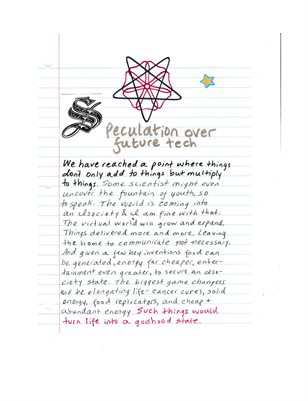 Speculation over
future tech
We have reached a point where things
don't only add to things but multiply
to things. Some scientist might even
uncover the fountain of youth, so
to speak. The world is coming into
an isociety & I am fine with that.
The virtual world will grow and expand.
Things delivered more and more. Leaving
the home to communicate not necessary.
And given a few key inventions food can
be generated, energy for cheaper, enter-
tainment even greater, to secure an aso-
ciety state. The biggest game changers
will be elongating life- cancer cures, solid
energy, food replicaters, and cheap +
abundant energy. Such things would
turn life into a godhood state.